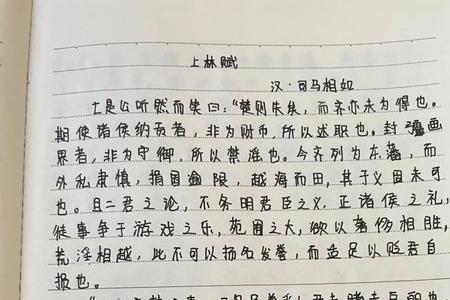 上林赋
汉·司马相如
亡是公听然而笑曰:“楚则失矣,而齐亦未为得也。
期使诸侯纳贡者,非为财币,所以述职也。封疆画
界者,非为守御,所以禁淫也。今齐列为东藩,而
外私肃慎,捐国逾限,越海而田,其于义固未可
也。且二君之论,不务明君臣之义,正诸侯之礼,
徒事争于游戏之乐,苑囿之大,欲以奢侈相胜,
荒淫相越,此不可以扬名发誉,而适足以贬君自
损也。